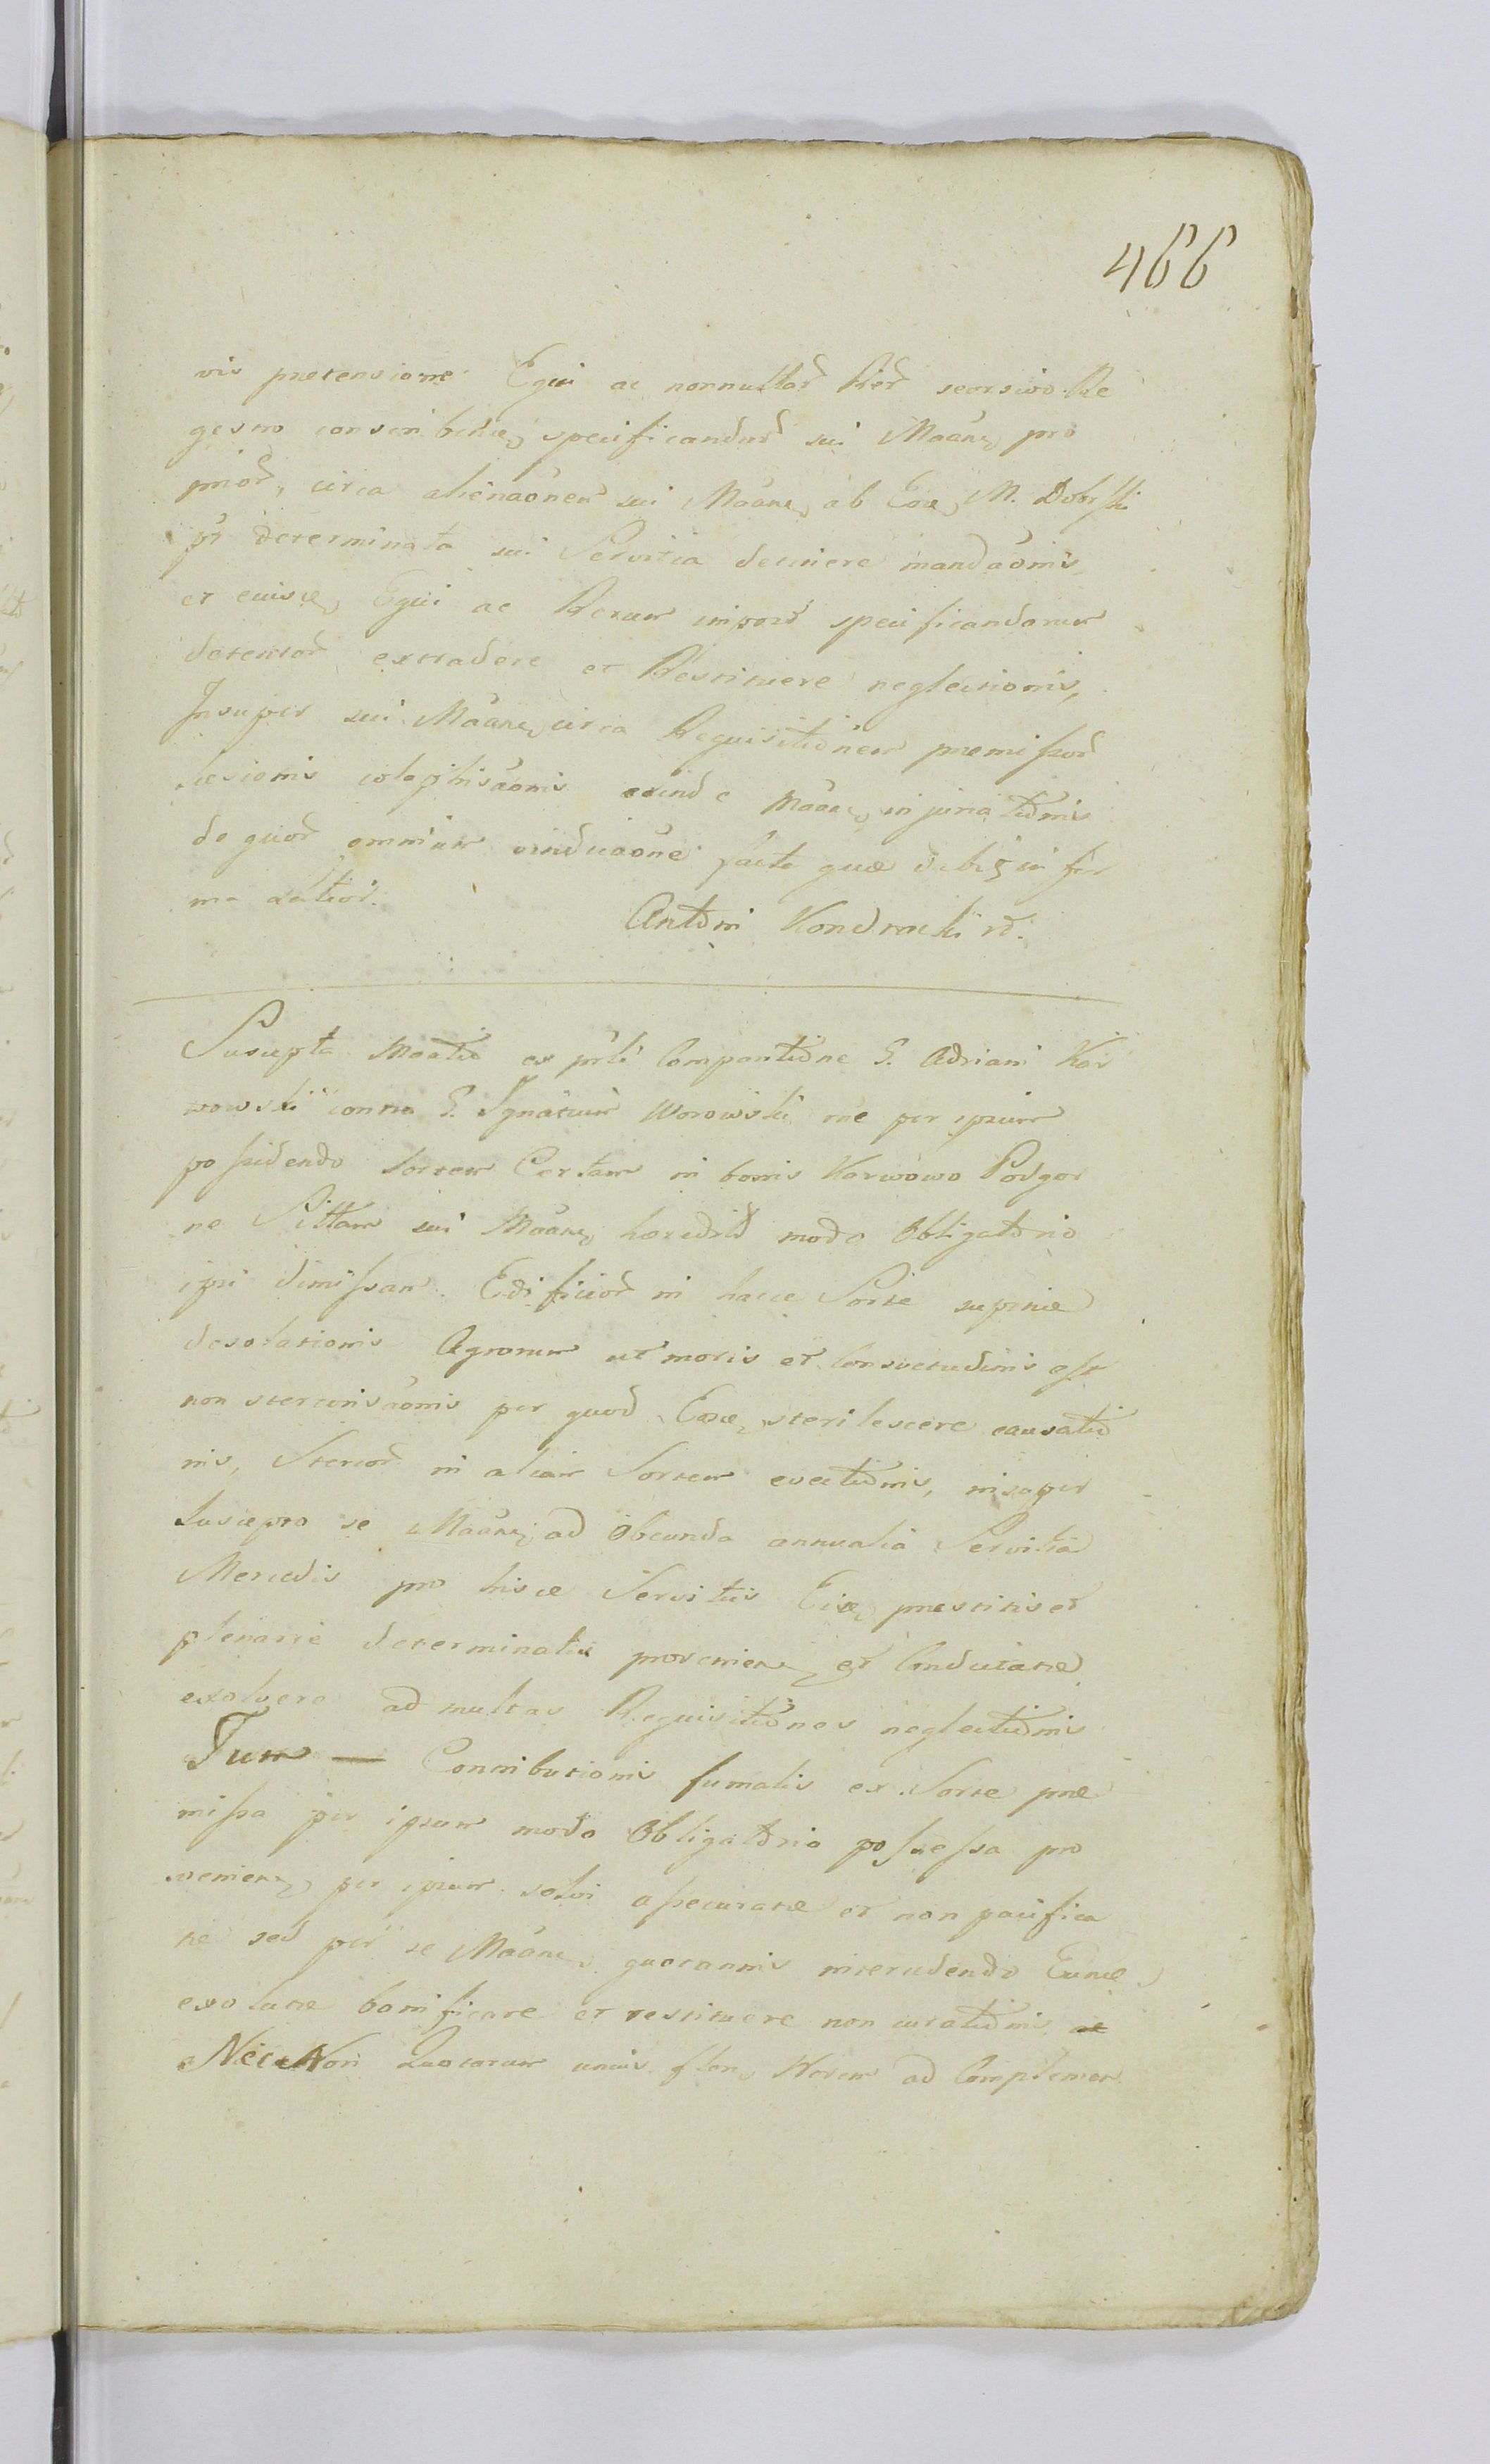 466
vis pretensione Equi ac nonnullor Rer seorsivo Re
gestro conscribend specificandar sui Māane pro
prior, circa alienaonem sui Māane ab Eoe M. Dobrski
pr determinata sui Servitia decurere mandaonis
et eiusce Equi ac Rerum impost specificandarum
detentor extradere et Restituere neglectionis,
Insuper sui Māane circa Requisitionem premissor
læsionis colaphisaonis exinde Māane injuriationis
de quor omnium vindicaone facta que debi in for
ma latior.
Antoni Kondracki
Suscepta Moatio ex prti Comparitione G. Adriani Kar
wowski contra G. Ignatium Worowski me per ipsum
possidendo Sortem Certam in bonis Karwowo Podgor
ne Sittam sui Māane hæredit modo Obligatorio
ipsi dimissam. Edificior in hacce Sorte supinæ
desolationis Agrorum ut moris et Consvetudinis est
non stercorisaonis per quod Eosce sterilescere causatio
nis, Stercor in aliam Sortem evectionis, insuper
Susce pro se Māane ad Obeunda annualia Servitia
Mercedis pro hisce Servitiis Eisce prestitis et
plenarie determinatis provenien et Conductatæ
exolvere ad multas Requisitiones neglectionis
Tum — Contributionis fumalis ex Sorte præ
missa per ipsum modo Obligatorio possessa pro
venien per ipsum solvi assecuratæ et non pacifica
tæ sed per se Māane quotannis intercedendo Eunde
exolutæ bonificare et restituere non curationis
Nec Non Quotarum unius flor Novem ad Complemen